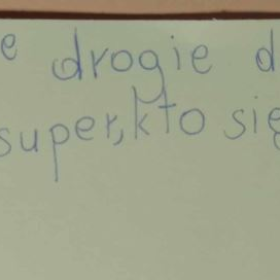 e drogie d
super, kto się